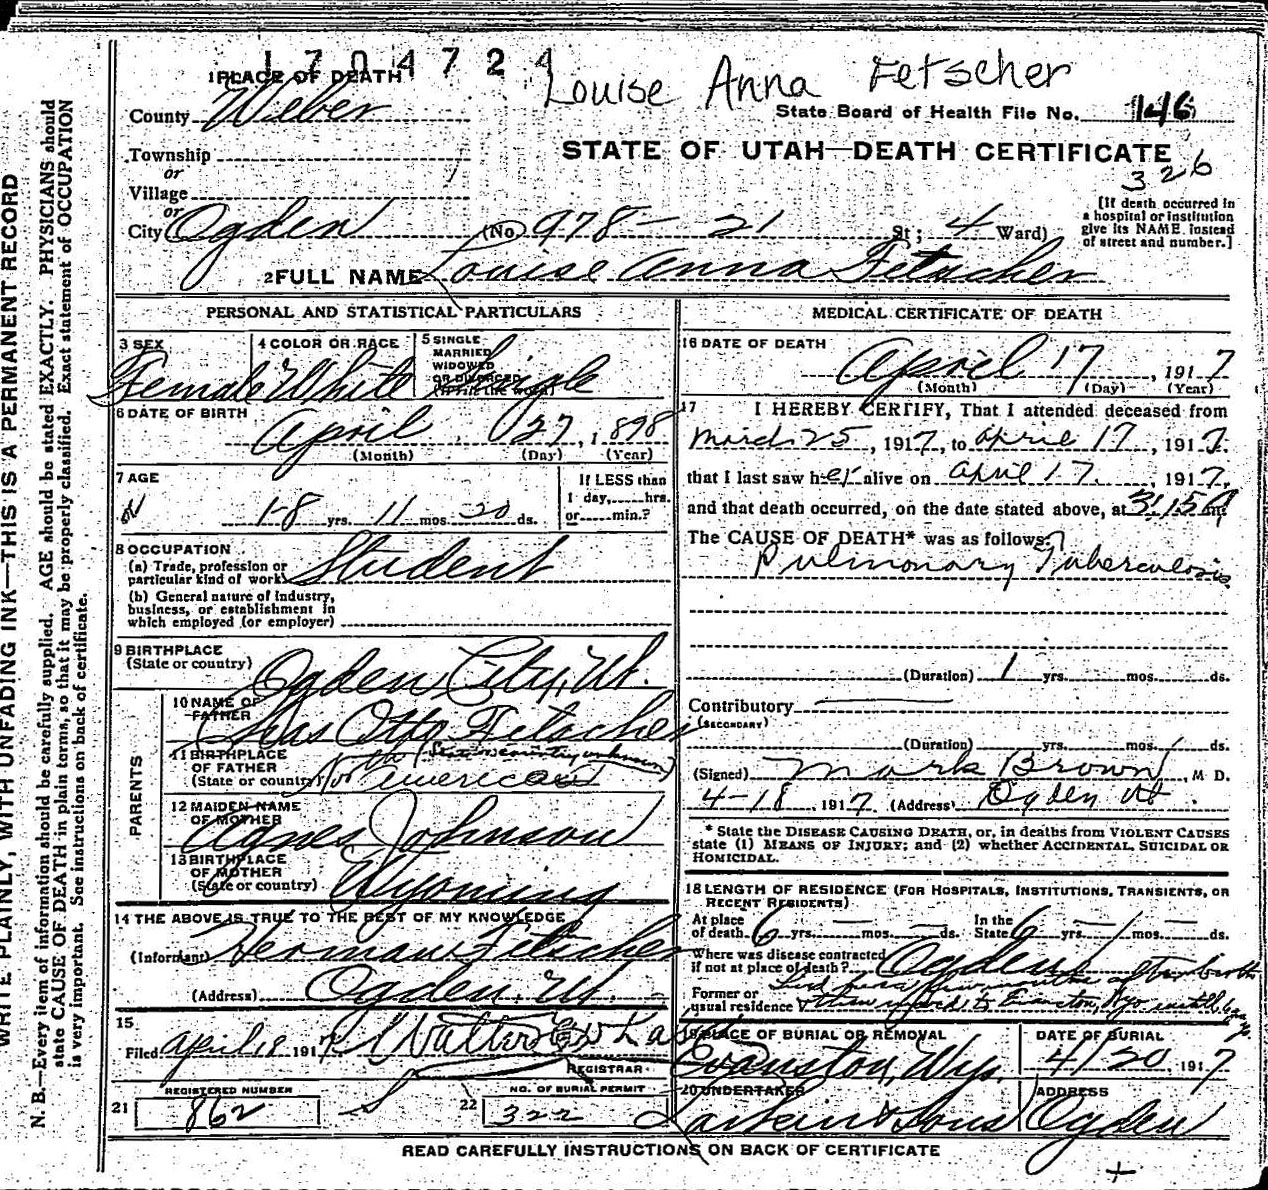 1704724
Louise Anna Fetscher
1 PLACE OF DEATH
County Weber
State Board of Health File No. 146
Township
or
STATE OF UTAH—DEATH CERTIFICATE
326
Village
or
City Ogden (No. 978 - 21 St; 4 Ward)
[If death occurred in
a hospital or institution
give its NAME instead
of street and number.]
2 FULL NAME Louise Anna Fetscher
PERSONAL AND STATISTICAL PARTICULARS
3 SEX Female
4 COLOR OR RACE White
5 SINGLE
MARRIED
WIDOWED
OR DIVORCED
(Write the word)
Single
6 DATE OF BIRTH
April 27, 1898
(Month) (Day) (Year)
7 AGE
18 yrs. 11 mos. 20 ds.
If LESS than
1 day, hrs.
or min.?
8 OCCUPATION
(a) Trade, profession or
particular kind of work Student
(b) General nature of industry,
business, or establishment in
which employed (or employer)
9 BIRTHPLACE
(State or country) Ogden City, Ut.
PARENTS
10 NAME OF
FATHER
Otto Fetscher
11 BIRTHPLACE
OF FATHER
(State or country)
12 MAIDEN NAME
OF MOTHER
Agnes Johnson
13 BIRTHPLACE
OF MOTHER
(State or country) Wyoming
14 THE ABOVE IS TRUE TO THE BEST OF MY KNOWLEDGE
(Informant) Herman Fetscher
(Address) Ogden, Ut.
15
Filed April 18 1917 Walter
REGISTRAR
REGISTERED NUMBER
21 862
NO. OF BURIAL PERMIT
22 322
MEDICAL CERTIFICATE OF DEATH
16 DATE OF DEATH
April 17, 1917
(Month) (Day) (Year)
17 I HEREBY CERTIFY, That I attended deceased from
March 25, 1917, to April 17, 1917.
that I last saw her alive on April 17, 1917,
and that death occurred, on the date stated above, at 3:15
The CAUSE OF DEATH* was as follows:
Pulmonary Tuberculosis
(Duration) 1 yrs. mos. ds.
Contributory
(SECONDARY)
(Duration) yrs. mos. ds.
(Signed) Mark Brown, M D.
4-18, 1917 (Address) Ogden Ut.
* State the DISEASE CAUSING DEATH, or, in deaths from VIOLENT CAUSES
state (1) MEANS OF INJURY; and (2) whether ACCIDENTAL, SUICIDAL OR
HOMICIDAL.
18 LENGTH OF RESIDENCE (FOR HOSPITALS, INSTITUTIONS, TRANSIENTS, OR
RECENT RESIDENTS)
At place
of death 6 yrs. — mos. — ds.
In the
State 6 yrs. — mos. — ds.
Where was disease contracted
if not at place of death? Ogden
Former or
usual residence
19 PLACE OF BURIAL OR REMOVAL
Evanston, Wyo.
DATE OF BURIAL
4/20 1917
20 UNDERTAKER
Larkin & Sons
ADDRESS
Ogden
READ CAREFULLY INSTRUCTIONS ON BACK OF CERTIFICATE
WRITE PLAINLY, WITH UNFADING INK—THIS IS A PERMANENT RECORD
N. B.—Every item of information should be carefully supplied. AGE should be stated EXACTLY. PHYSICIANS should
state CAUSE OF DEATH in plain terms, so that it may be properly classified. Exact statement of OCCUPATION
is very important. See instructions on back of certificate.